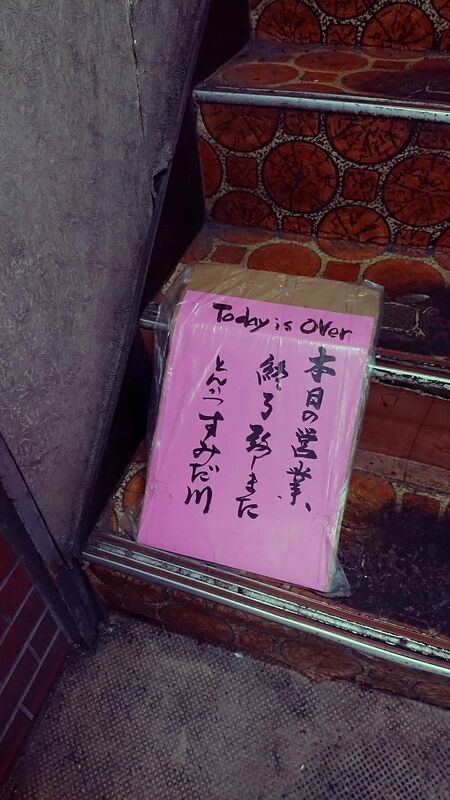 Today is Over
本日の営業、
終了致しました
とんかつ すみだ川